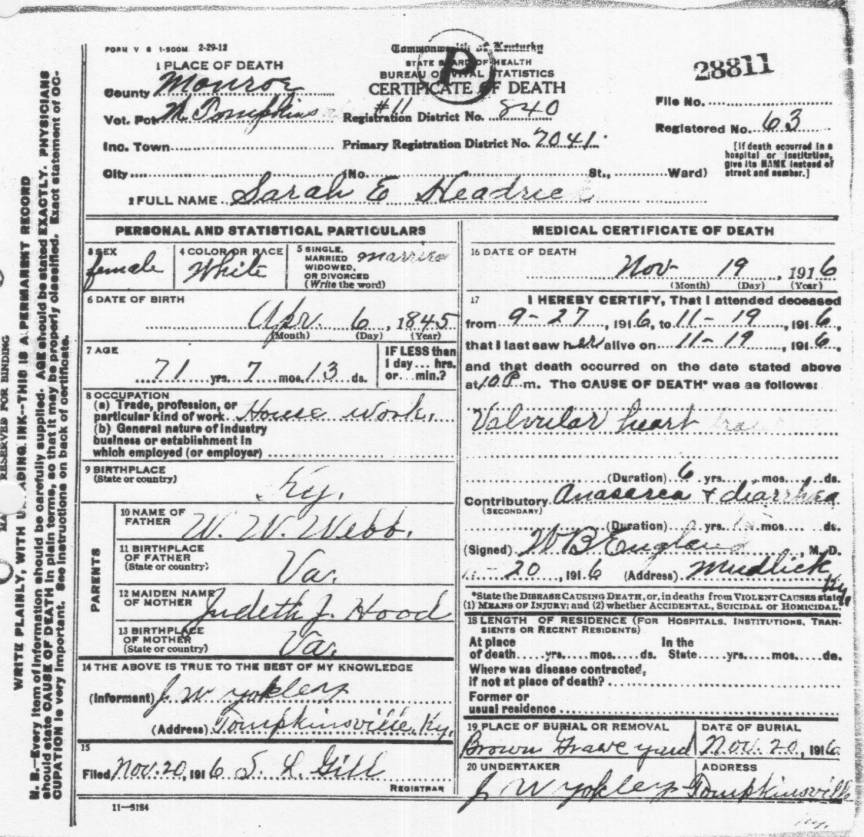 FORM V S 1-500M 2-29-12
Commonwealth of Kentucky
STATE BOARD OF HEALTH
BUREAU OF VITAL STATISTICS
CERTIFICATE OF DEATH
P
28811
1 PLACE OF DEATH
County Monroe
Vot. Pct N Tompkins #11 Registration District No. 840
File No.
Inc. Town Primary Registration District No. 7041
Registered No. 63
City (No. St., Ward)
[If death occurred in a hospital or institution, give its NAME instead of street and number.]
2 FULL NAME Sarah E Headric
PERSONAL AND STATISTICAL PARTICULARS
3 SEX female
4 COLOR OR RACE White
5 SINGLE, MARRIED WIDOWED, OR DIVORCED (Write the word) married
6 DATE OF BIRTH
Apr. 6, 1845
(Month) (Day) (Year)
7 AGE
71 yrs. 7 mos. 13 ds.
IF LESS than
1 day ... hrs.
or ... min.?
8 OCCUPATION
(a) Trade, profession, or
particular kind of work House Work.
(b) General nature of industry
business or establishment in
which employed (or employer)
9 BIRTHPLACE
(State or country) Ky.
PARENTS
10 NAME OF
FATHER W. W. Webb.
11 BIRTHPLACE
OF FATHER
(State or country) Va.
12 MAIDEN NAME
OF MOTHER Judeth J. Hood
13 BIRTHPLACE
OF MOTHER
(State or country) Va.
14 THE ABOVE IS TRUE TO THE BEST OF MY KNOWLEDGE
(Informant) J W Yokley
(Address) Tompkinsville, Ky.
15
Filed Nov. 20, 1916 S. L. Gill
REGISTRAR
11-3184
MEDICAL CERTIFICATE OF DEATH
16 DATE OF DEATH
Nov- 19, 1916
(Month) (Day) (Year)
17 I HEREBY CERTIFY, That I attended deceased
from 9-27, 1916, to 11-19, 1916,
that I last saw her alive on 11-19, 1916,
and that death occurred on the date stated above
at 10 P. m. The CAUSE OF DEATH* was as follows:
Valvular heart
(Duration) 6 yrs. mos. ds.
Contributory Anaserca + diarrhea
(SECONDARY)
(Duration) yrs. mos. ds.
(Signed) W. B. England, M. D.
-20, 1916 (Address) Mudlick Ky.
*State the DISEASE CAUSING DEATH, or, in deaths from VIOLENT CAUSES state
(1) MEANS OF INJURY; and (2) whether ACCIDENTAL, SUICIDAL or HOMICIDAL.
18 LENGTH OF RESIDENCE (FOR HOSPITALS, INSTITUTIONS, TRAN-
SIENTS OR RECENT RESIDENTS)
At place In the
of death yrs. mos. ds. State yrs. mos. ds.
Where was disease contracted,
if not at place of death?
Former or
usual residence
19 PLACE OF BURIAL OR REMOVAL
Brown Grave yard
DATE OF BURIAL
Nov. 20, 1916
20 UNDERTAKER
J W Yokley
ADDRESS
Tompkinsville
Ky.
RESERVED FOR BINDING
WRITE PLAINLY, WITH ADING INK—THIS IS A PERMANENT RECORD
N. B.—Every item of information should be carefully supplied. AGE should be stated EXACTLY. PHYSICIANS
should state CAUSE OF DEATH in plain terms, so that it may be properly classified. Exact statement of OC-
CUPATION is very important. See instructions on back of certificate.